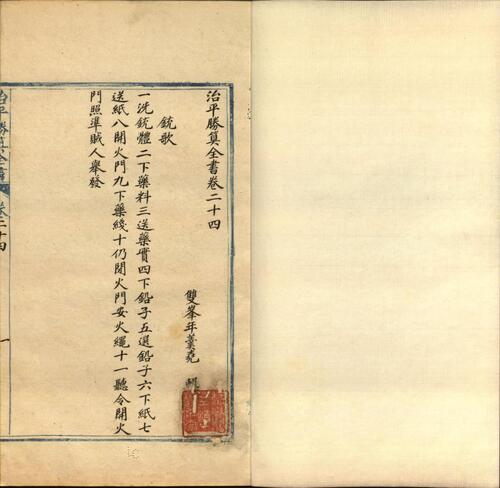 治平勝算全書卷二十四
雙峯年羹堯
銃歌
一洗銃體二下藥料三送藥實四下鉛子五選鉛子六下紙七
送紙八開火門九下藥綫十仍閉火門安火繩十一聽令開火
門照準賊人舉發
治平勝算全書
卷二十四
一